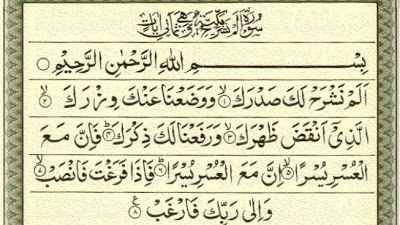 سُوْرَةُ اَلَمْ نَشْرَحْ مَكِّيَّةٌ وَّهِيَ ثَمَانِيْ اٰيَاتٍ
بِسْمِ اللّٰهِ الرَّحْمٰنِ الرَّحِيْمِ ۝
اَلَمْ نَشْرَحْ لَكَ صَدْرَكَ ۝۱ وَوَضَعْنَا عَنْكَ وِزْرَكَ ۝۲
الَّذِيْٓ اَنْقَضَ ظَهْرَكَ ۝۳ وَرَفَعْنَا لَكَ ذِكْرَكَ ۝۴ فَاِنَّ مَعَ
الْعُسْرِ يُسْرًا ۝۵ اِنَّ مَعَ الْعُسْرِ يُسْرًا ۝۶ فَاِذَا فَرَغْتَ فَانْصَبْ ۝۷
وَاِلٰى رَبِّكَ فَارْغَبْ ۝۸ ع